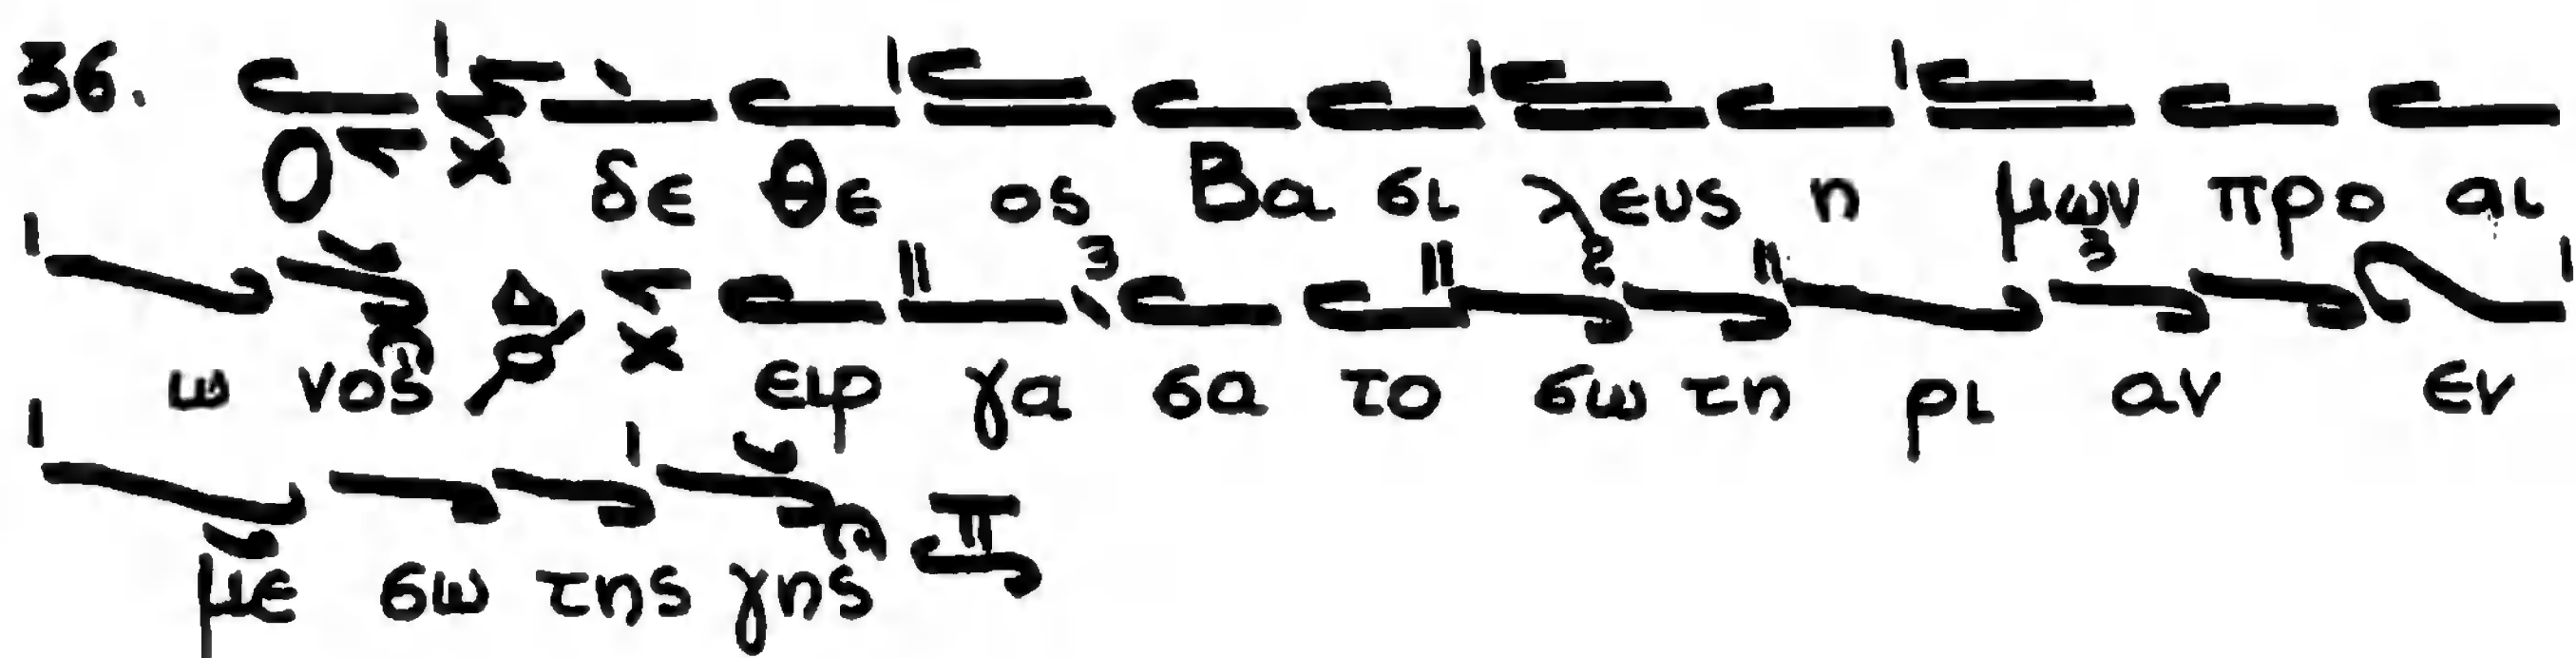 36. Ο δε θε ος Βα σι λευς η μων προ αι
ω νος ειρ γα σα το σω τη ρι αν εν
με σω της γης